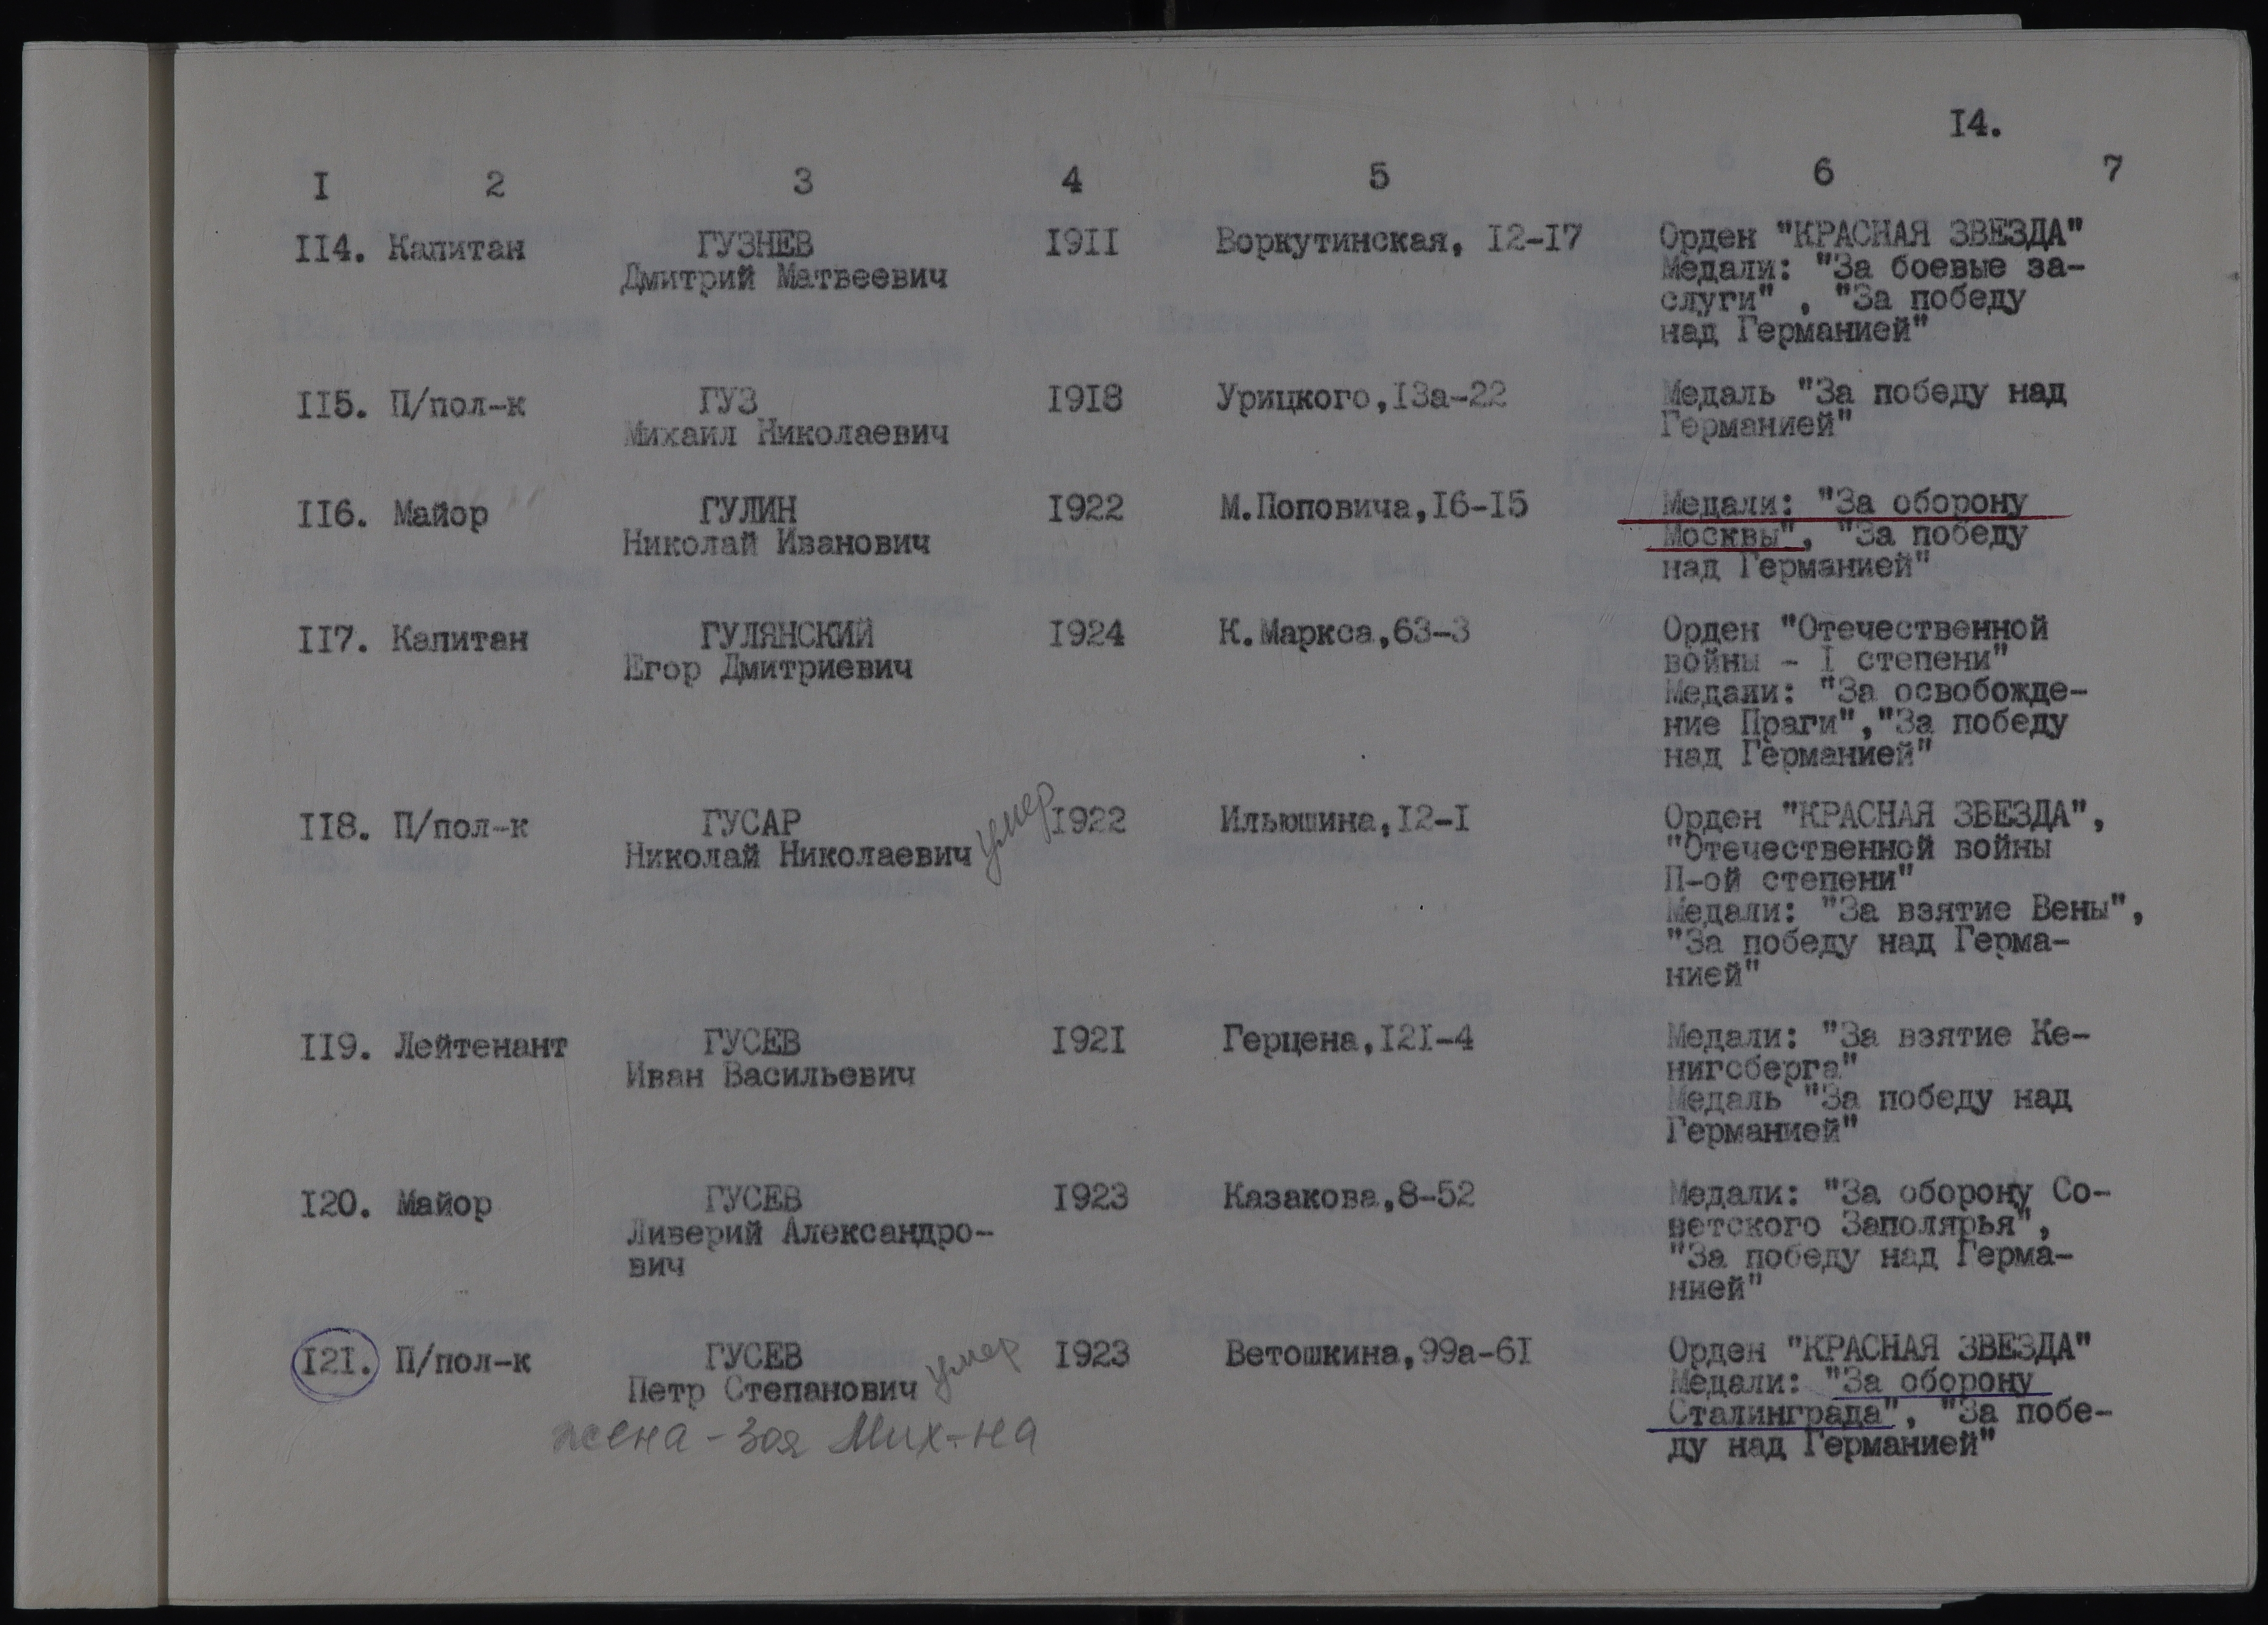 I4.
I 2 3 4 5 6 7
II4. Капитан ГУЗНЕВ I9II Воркутинская, I2-I7 Орден "КРАСНАЯ ЗВЕЗДА"
Дмитрий Матвеевич Медали: "За боевые за-
слуги" , "За победу
над Германией"
II5. П/пол-к ГУЗ I9I8 Урицкого,I3а-22 Медаль "За победу над
Михаил Николаевич Германией"
II6. Майор ГУЛИН I922 М.Поповича,I6-I5 Медали: "За оборону
Николай Иванович Москвы", "За победу
над Германией"
II7. Капитан ГУЛЯНСКИЙ I924 К.Маркса,63-3 Орден "Отечественной
Егор Дмитриевич войны - I степени"
Медали: "За освобожде-
ние Праги","За победу
над Германией"
II8. П/пол-к ГУСАР умер I922 Ильюшина,I2-I Орден "КРАСНАЯ ЗВЕЗДА",
Николай Николаевич "Отечественной войны
П-ой степени"
Медали: "За взятие Вены",
"За победу над Герма-
нией"
II9. Лейтенант ГУСЕВ I92I Герцена,I2I-4 Медали: "За взятие Ке-
Иван Васильевич нигсберга"
Медаль "За победу над
Германией"
I20. Майор ГУСЕВ I923 Казакова,8-52 Медали: "За оборону Со-
Ливерий Александро- ветского Заполярья",
вич "За победу над Герма-
нией"
I2I. П/пол-к ГУСЕВ умер I923 Ветошкина,99а-6I Орден "КРАСНАЯ ЗВЕЗДА"
Петр Степанович Медали: "За оборону
Сталинграда", "За побе-
жена - Зоя Мих-на ду над Германией"